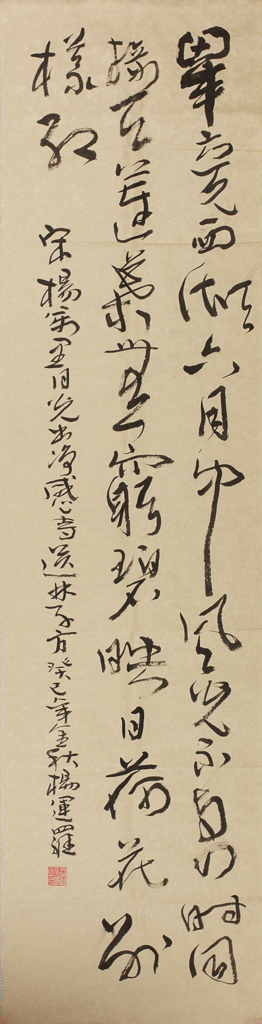 畢竟西湖六月中風光不與四時同
接天蓮葉無窮碧映日荷花别
樣紅
宋楊萬里曉出净慈寺送林子方癸巳年金秋楊運羅